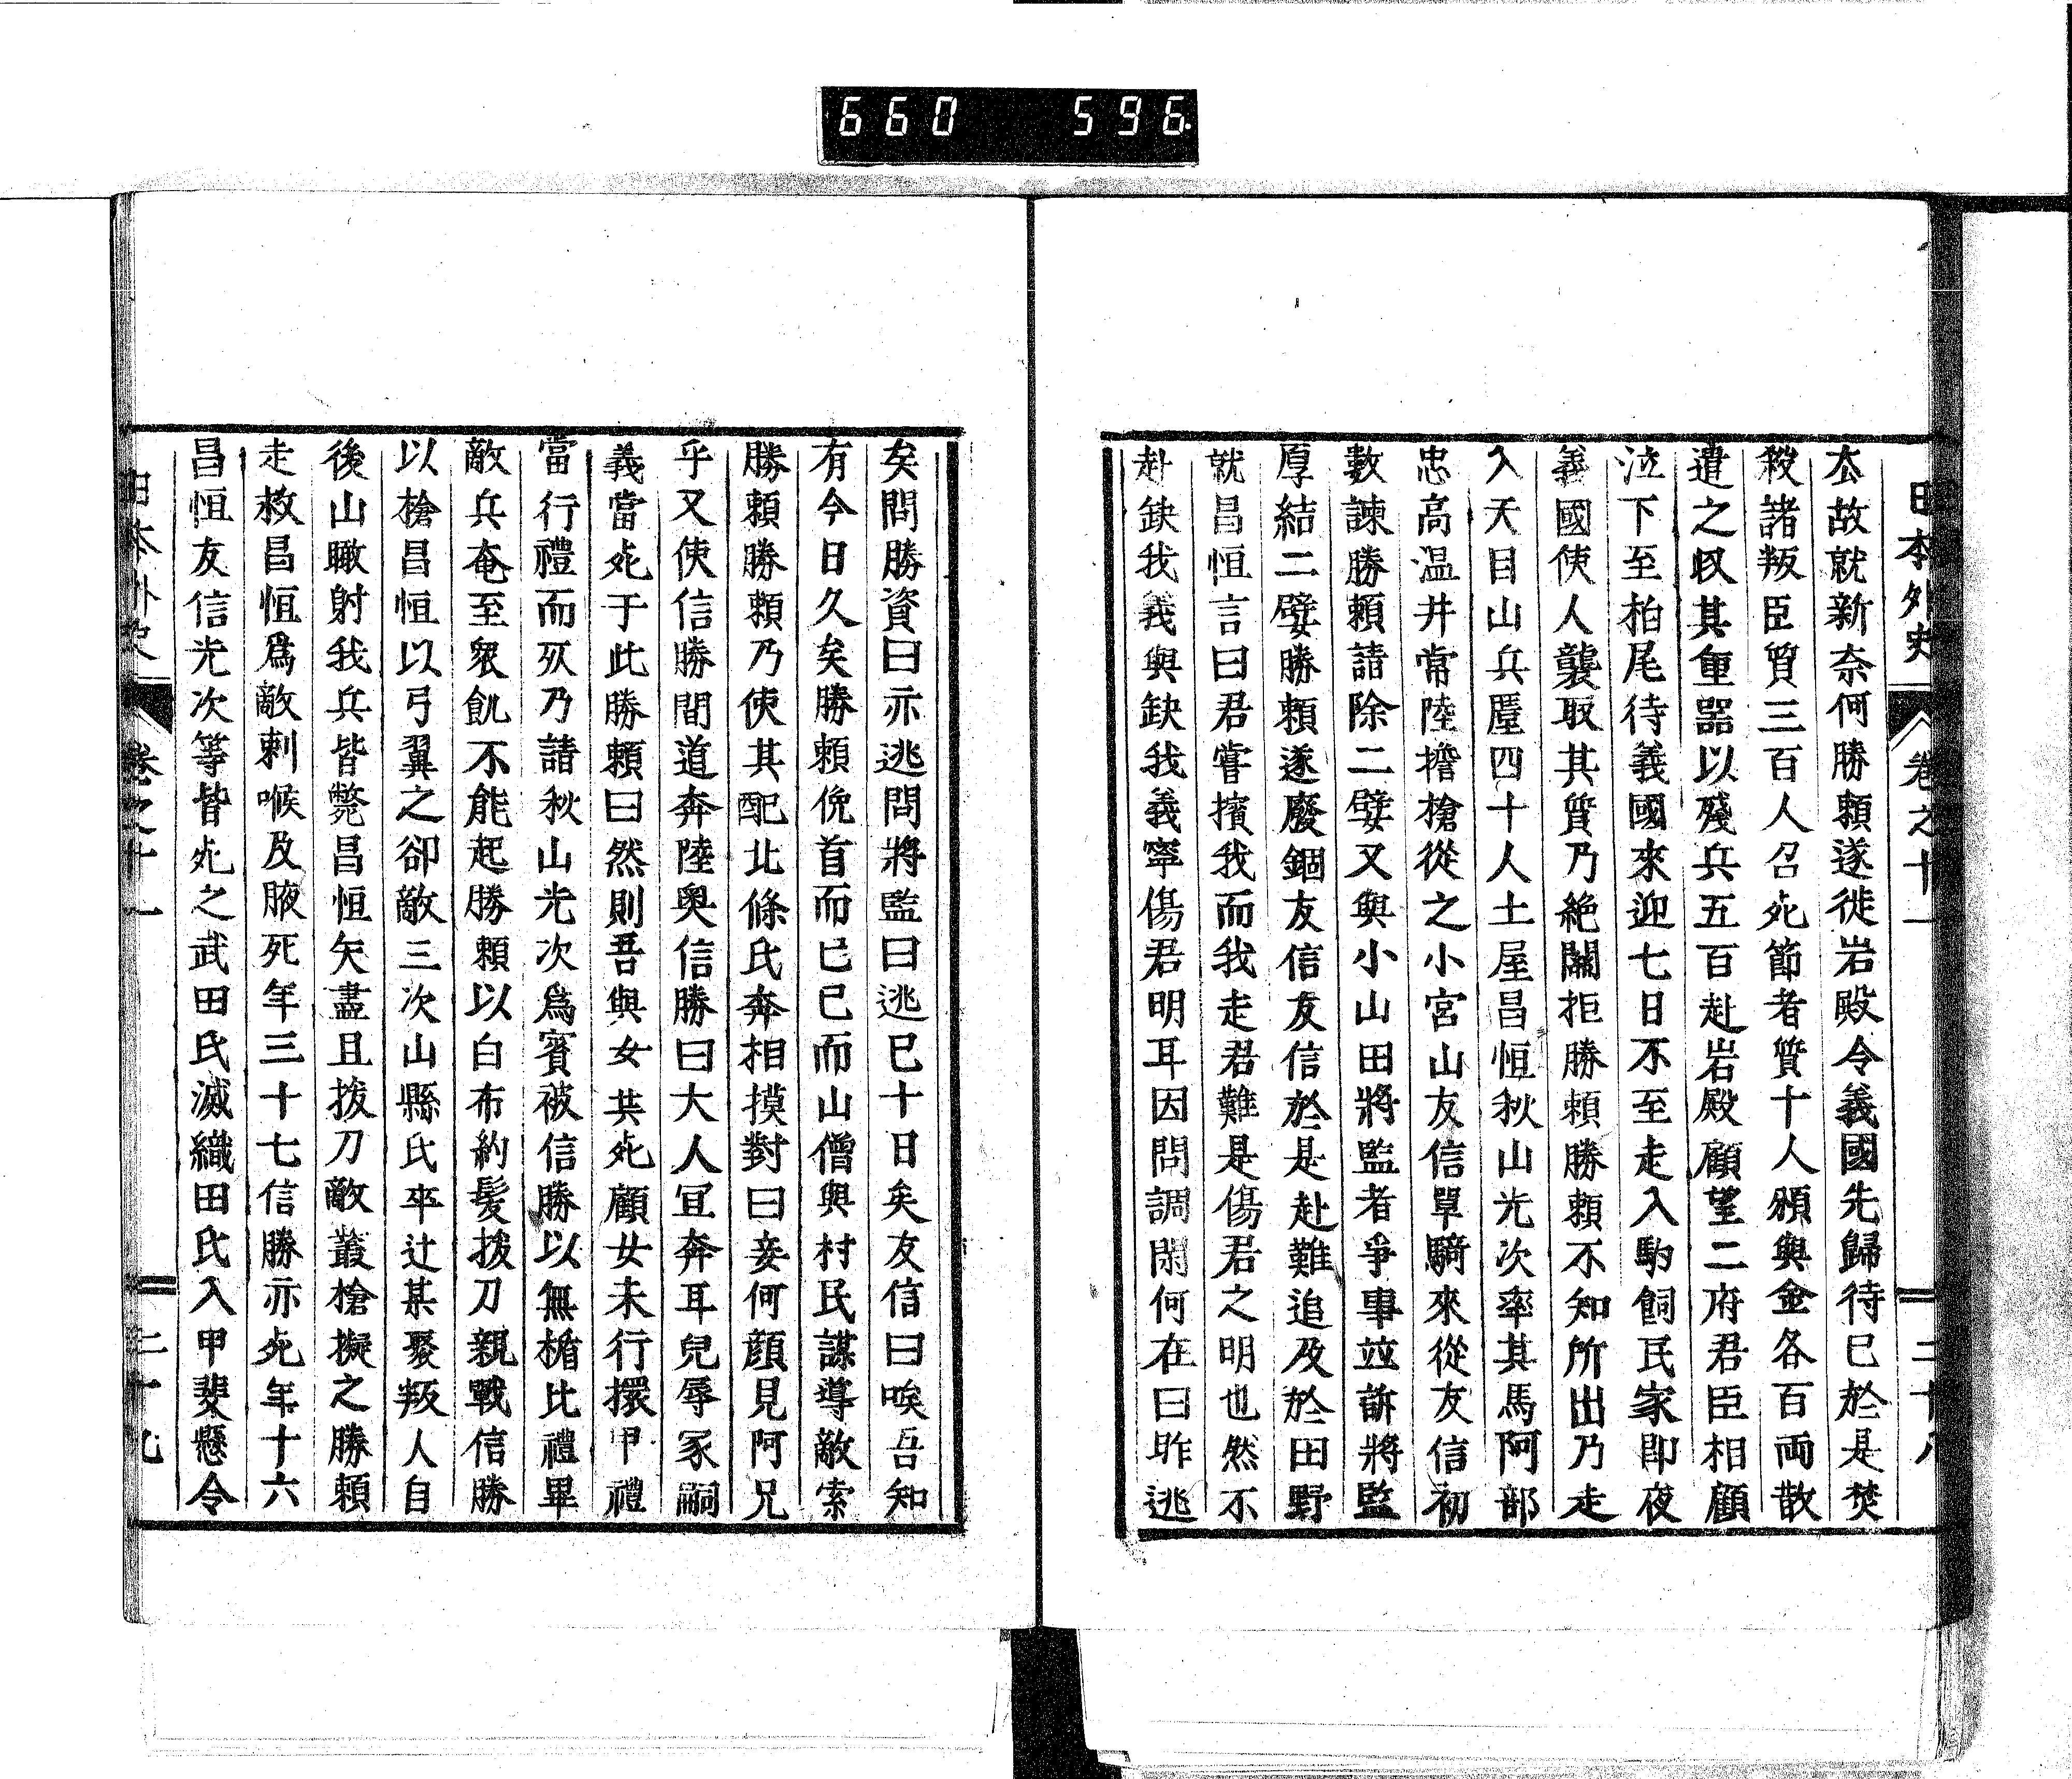 660 596
日本外史 卷之十一 二十八
太故就新奈何勝頼遂徙岩殿令義國先歸待已於是焚
殺諸叛臣質三百人召死節者質十人頒與金各百両散
遣之収其重器以殘兵五百赴岩殿顧望二府君臣相顧
泣下至柏尾待義國來迎七日不至走入駒飼民家即夜
義國使人襲取其質乃絶關拒勝頼勝頼不知所出乃走
入天目山兵壓四十人土屋昌恒秋山光次率其馬阿部
忠高温井常陸擔槍從之小宮山友信單騎來從友信初
數諫勝頼請除二嬖又與小山田將監者爭事竝訴將監
厚結二嬖勝頼遂廢錮友信友信於是赴難追及於田野
就昌恒言曰君嘗擯我而我走君難是傷君之明也然不
赴缺我義與缺我義寧傷君明耳因問調閑何在曰昨逃
矣問勝資曰亦逃問將監曰逃已十日矣友信曰唉吾知
有今日久矣勝頼俛首而已已而山僧與村民謀導敵索
勝頼勝頼乃使其配北條氏奔相摸對曰妾何顔見阿兄
乎又使信勝間道奔陸奧信勝曰大人冝奔耳兒辱冢嗣
義當死于此勝頼曰然則吾與女共死顧女未行擐甲禮
當行禮而死乃請秋山光次爲賓被信勝以無楯比禮畢
敵兵奄至衆飢不能起勝頼以白布約髪拔刀親戰信勝
以槍昌恒以弓翼之卻敵三次山縣氏卒辻某聚叛人自
後山瞰射我兵皆斃昌恒矢盡且拔刀敵叢槍擬之勝頼
走救昌恒爲敵刺喉及腋死年三十七信勝亦死年十六
昌恒友信光次等皆死之武田氏滅織田氏入甲斐懸令
日本外史 卷之十一 二十九